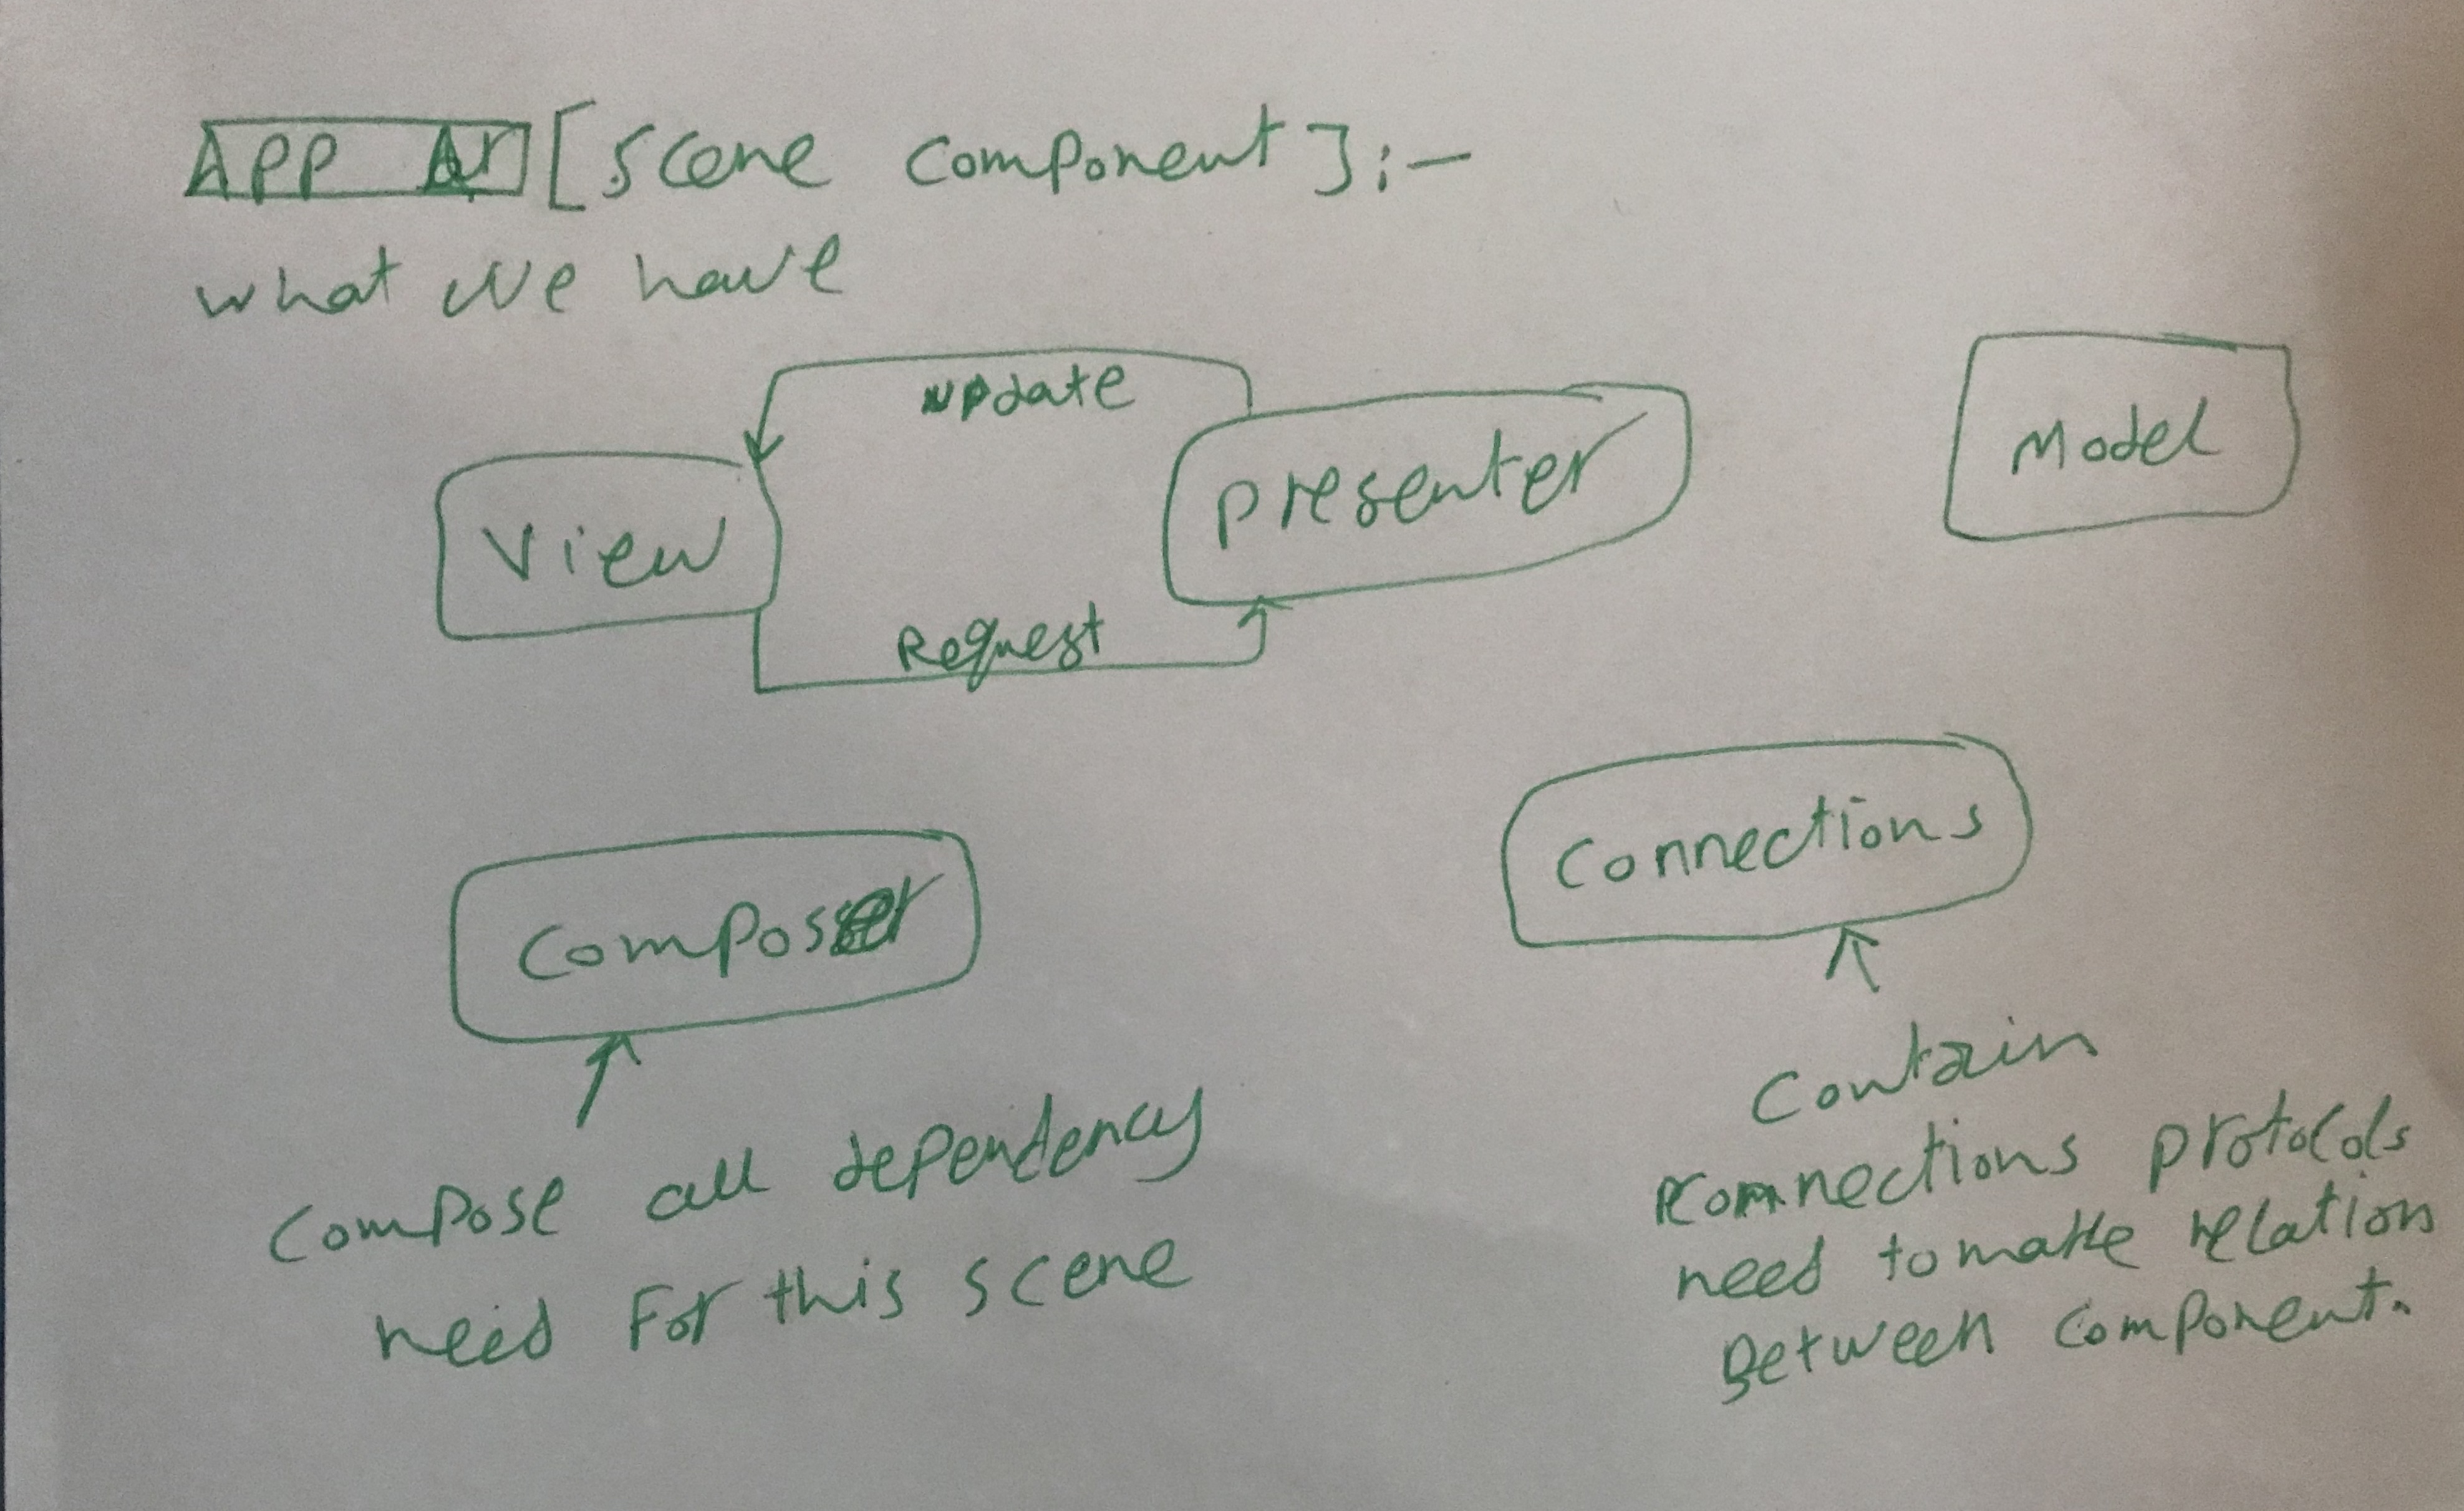 APP Ar [Scene Component] :-
what we have
update
View
Presenter
Model
Request
Composer
Connections
Compose all dependency
need For this scene
Contain
Connections protocols
need to make relation
Between Component.